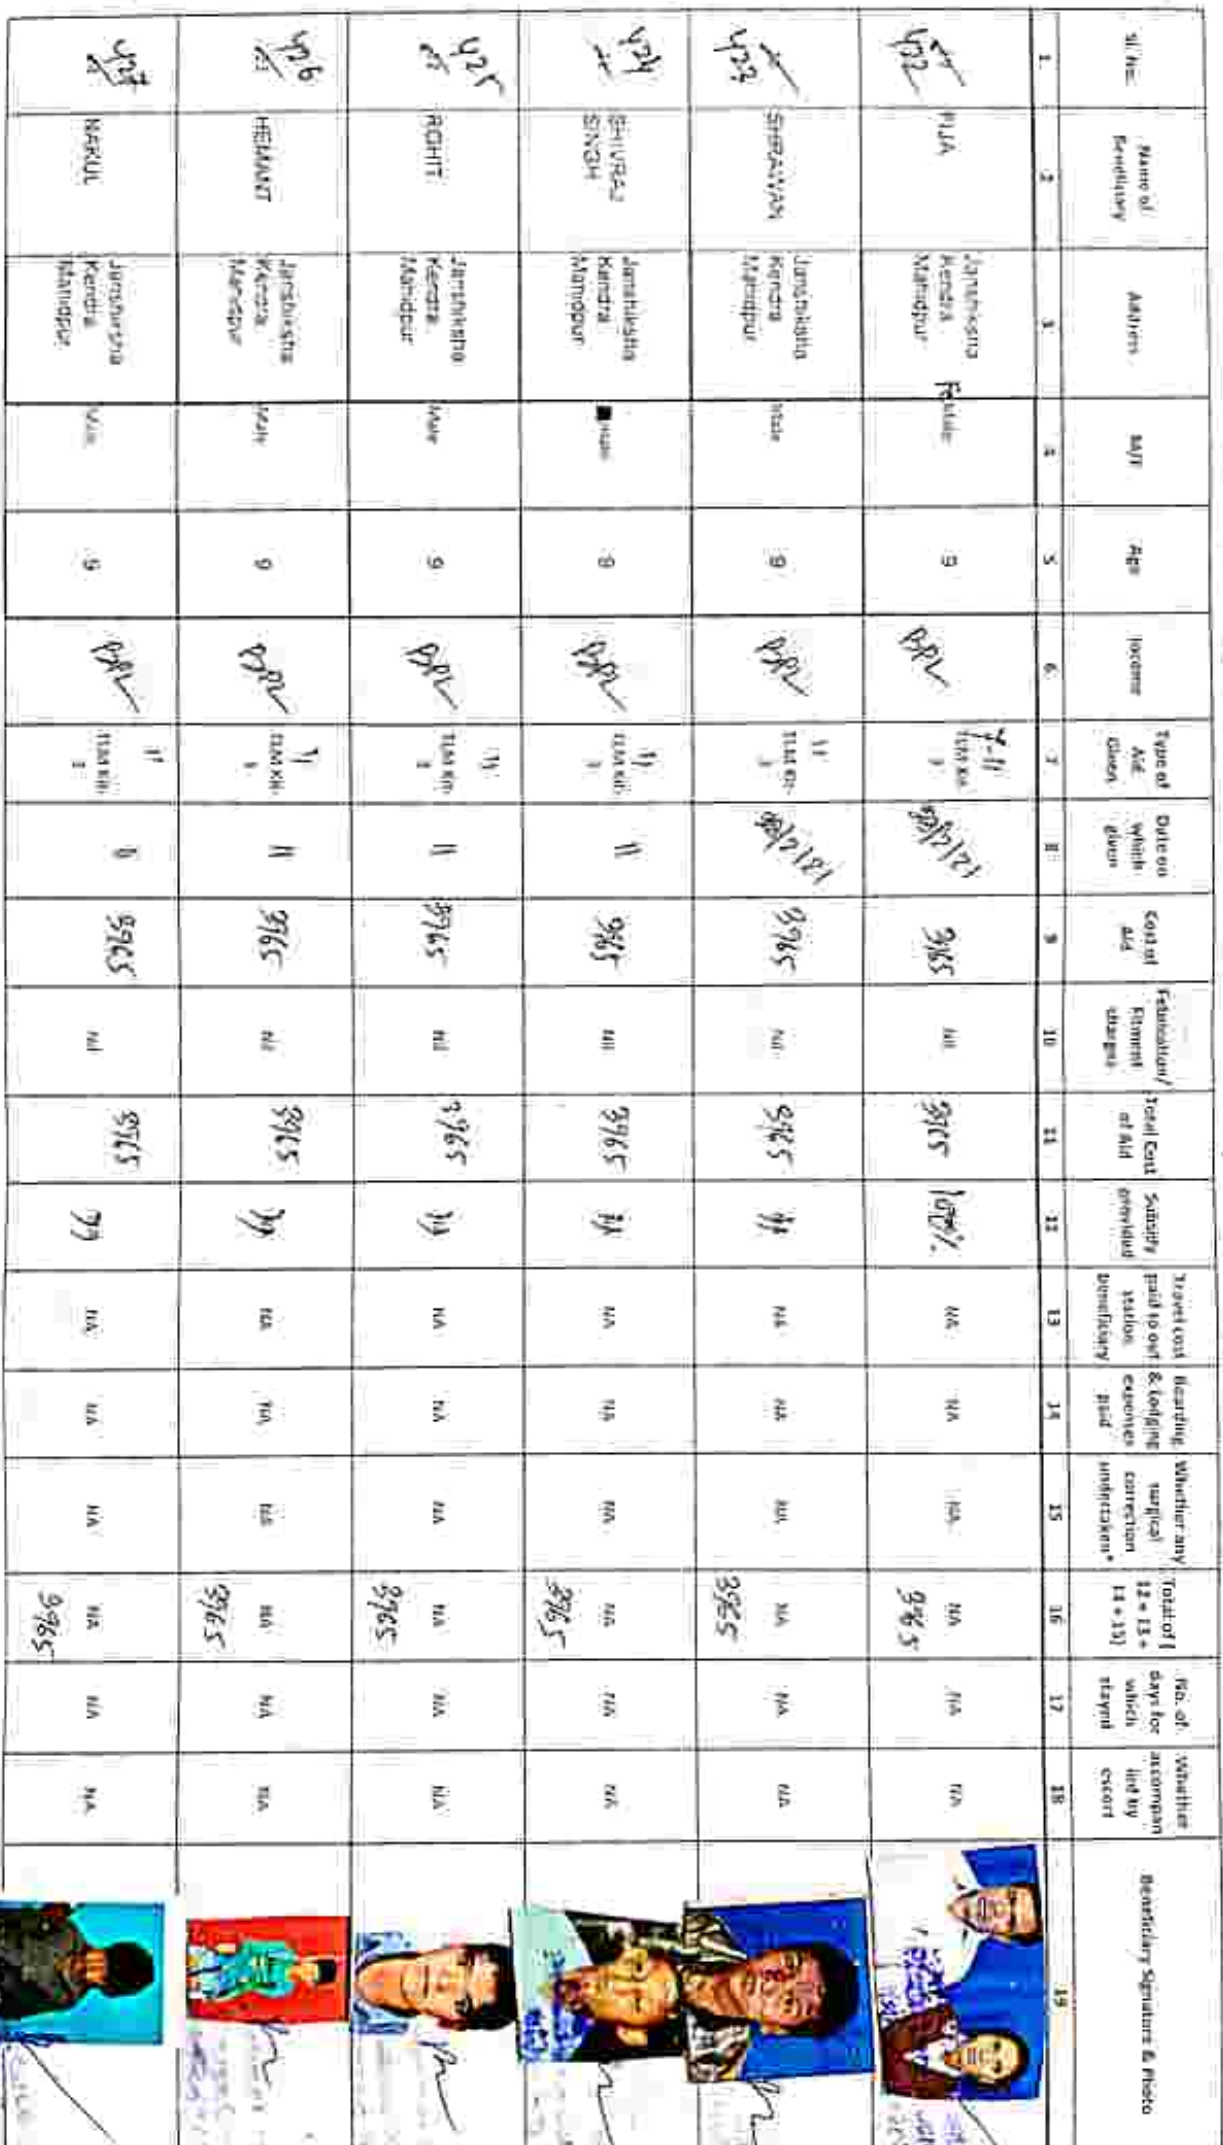 Sl. No.
Name of
Beneficiary
Address
M/F
Age
Income
Type of
Aid
Given
Date on
which
given
Cost of
aid
Fabrication/
Fitment
charges
Total Cost
of Aid
Subsidy
provided
Travel cost
paid to out
station
beneficiary
Boarding
& Lodging
expenses
paid
Whether any
surgical
correction
undertaken*
Total of (
12 + 13 +
14 + 15)
No. of
days for
which
stayed
Whether
accompan
ied by
escort
Beneficiary Signature & Photo
1 2 3 4 5 6 7 8 9 10 11 12 13 14 15 16 17 18 19
422
Janshiksha
Kendra
Mahidpur
Female
9
BPL
TLM Kit-
3965
Nil
3965
100%
NA
NA
NA
NA
3965
NA
NA
423
SHRAWAN
Janshiksha
Kendra
Mahidpur
Male
9
BPL
"
TLM Kit-
3965
Nil
3965
"
NA
NA
NA
NA
3965
NA
NA
424
SHIVRAJ
SINGH
Janshiksha
Kendra
Mahidpur
Male
9
BPL
"
TLM Kit-
"
3965
Nil
3965
"
NA
NA
NA
NA
3965
NA
NA
425
ROHIT
Janshiksha
Kendra
Mahidpur
Male
9
BPL
"
TLM Kit-
"
3965
Nil
3965
"
NA
NA
NA
NA
3965
NA
NA
426
HEMANT
Janshiksha
Kendra
Mahidpur
Male
9
BPL
"
TLM Kit-
"
3965
Nil
3965
"
NA
NA
NA
NA
3965
NA
NA
427
NAKUL
Janshiksha
Kendra
Mahidpur
Male
9
BPL
"
TLM Kit-
"
3965
Nil
3965
"
NA
NA
NA
NA
3965
NA
NA